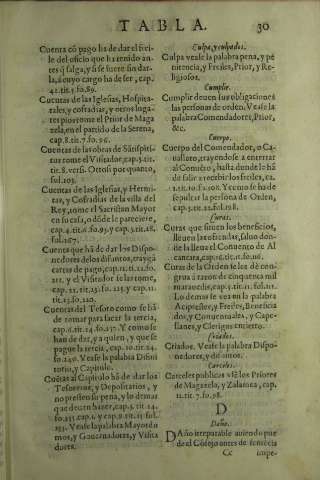 TABLA.
30
Cuenta cō pago ha de dar el frei-
le del oficio que ha tenido an-
tes q̄ salga, y si se fuere sin dar-
la, à cuyo cargo ha de ser, cap.
41. tit. 4. fo. 89.
Cuentas de las Iglesias, Hospita-
les, y cofradias, y otros luga-
res pios tome el Prior de Maga
zela, en el partido de la Serena,
cap. 8. tit. 7. fo. 96.
Cuentas de las obras de Sātispiri-
tus tome el Visitador, cap. 3. tit.
18. versi. Otrosi por quanto,
fol. 103.
Cuentas de las Iglesias, y Hermi-
tas, y Cofradias de la villa del
Rey, tome el Sacristan Mayor
en su casa, o dōde le pareciere,
cap. 4. tit. 10. 93. y cap. 3. tit. 18.
fol. 107.
Cuenta que hā de dar los Dispo-
nedores de los difuntos, trayga
cartas de pago, cap. 11. tit. 12. fo.
111. y el Visitador se las tome,
cap. 22. tit. 13. fo. 115. y cap. 11.
tit. 13. fo. 120.
Cuentas del Tesoro como se hā
de tomar para sacar la tercia,
cap. 1. tit. 14. fo. 137. Y como se
han de dar, y a quien, y que se
pague la tercia, cap. 14. tit. 24.
fo. 140. Vease la palabra Difini
torio, y Capitulo.
Cuētas al Capitulo hā de dar los
Tesoreros, y Depositarios, y
no presten su pan, y lo demas
que deuen hazer, cap. 3. tit. 24.
fo. 137. cap. 5. tit. 24. fo. 138.
Vease la palabra Mayordo
mos, y Gouernadores, y Visita
dores.
Culpa, y culpados.
Culpa vease la palabra pena, y pe
nitencia, y Freiles, Prior, y Re-
ligiosos.
Cumplir.
Cumplir deuen sus obligaciones
las personas de orden. Vease la
palabra Comendadores, Prior,
&c.
Cuerpo.
Cuerpo del Comendador, o Ca-
uallero, trayendose a enterrar
al Conuēto, hasta donde le hā
de salir a recebir los freiles, ca.
12. tit. 10. fo. 108. Y como se ha de
sepultar la persona de Orden,
cap. 3. tit. 12. fol. 118.
Curas.
Curas que siruen los beneficios,
lleuen las escusadas, salon don-
de las lleua el Conuento de Al
cantara, cap. 16. tit. 11. fo. 116.
Curas de la Orden se les dè con-
grua à razon de cinquēta mil
marauedis, cap. 1. tit. 21. fol. 111.
Lo demas se vea en la palabra
Acipreste, y Freiles, Beneficia
dos, y Conuentuales, y Cape-
llanes, y Clerigos en cierto.
Criados.
Criados. Vease la palabra Dispo-
nedores, y difuntos.
Carceles.
Carceles publicas dē los Priores
de Magazela, y Zalamea, cap.
11. tit. 7. fo. 98.
D
Daño.
Daño irreparable auiendo pue-
de el Cōsejo antes de sentēcia
Cc
impe-